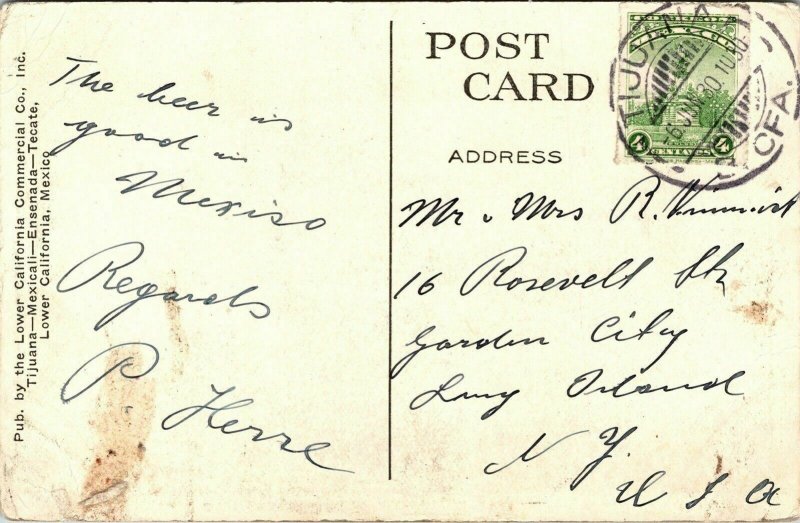 Pub. by the Lower California Commercial Co., Inc.
Tijuana—Mexicali—Ensenada—Tecate,
Lower California, Mexico
The beer is
good in
Mexiso
Regards
P Herre
POST
CARD
ADDRESS
TIJUANA
6 JUN 30. 10 30
CFA.
4 4
CENTAVOS
Mr & Mrs R.
16 Rosevelt Str
Garden City
Long Island
N Y.
U S A